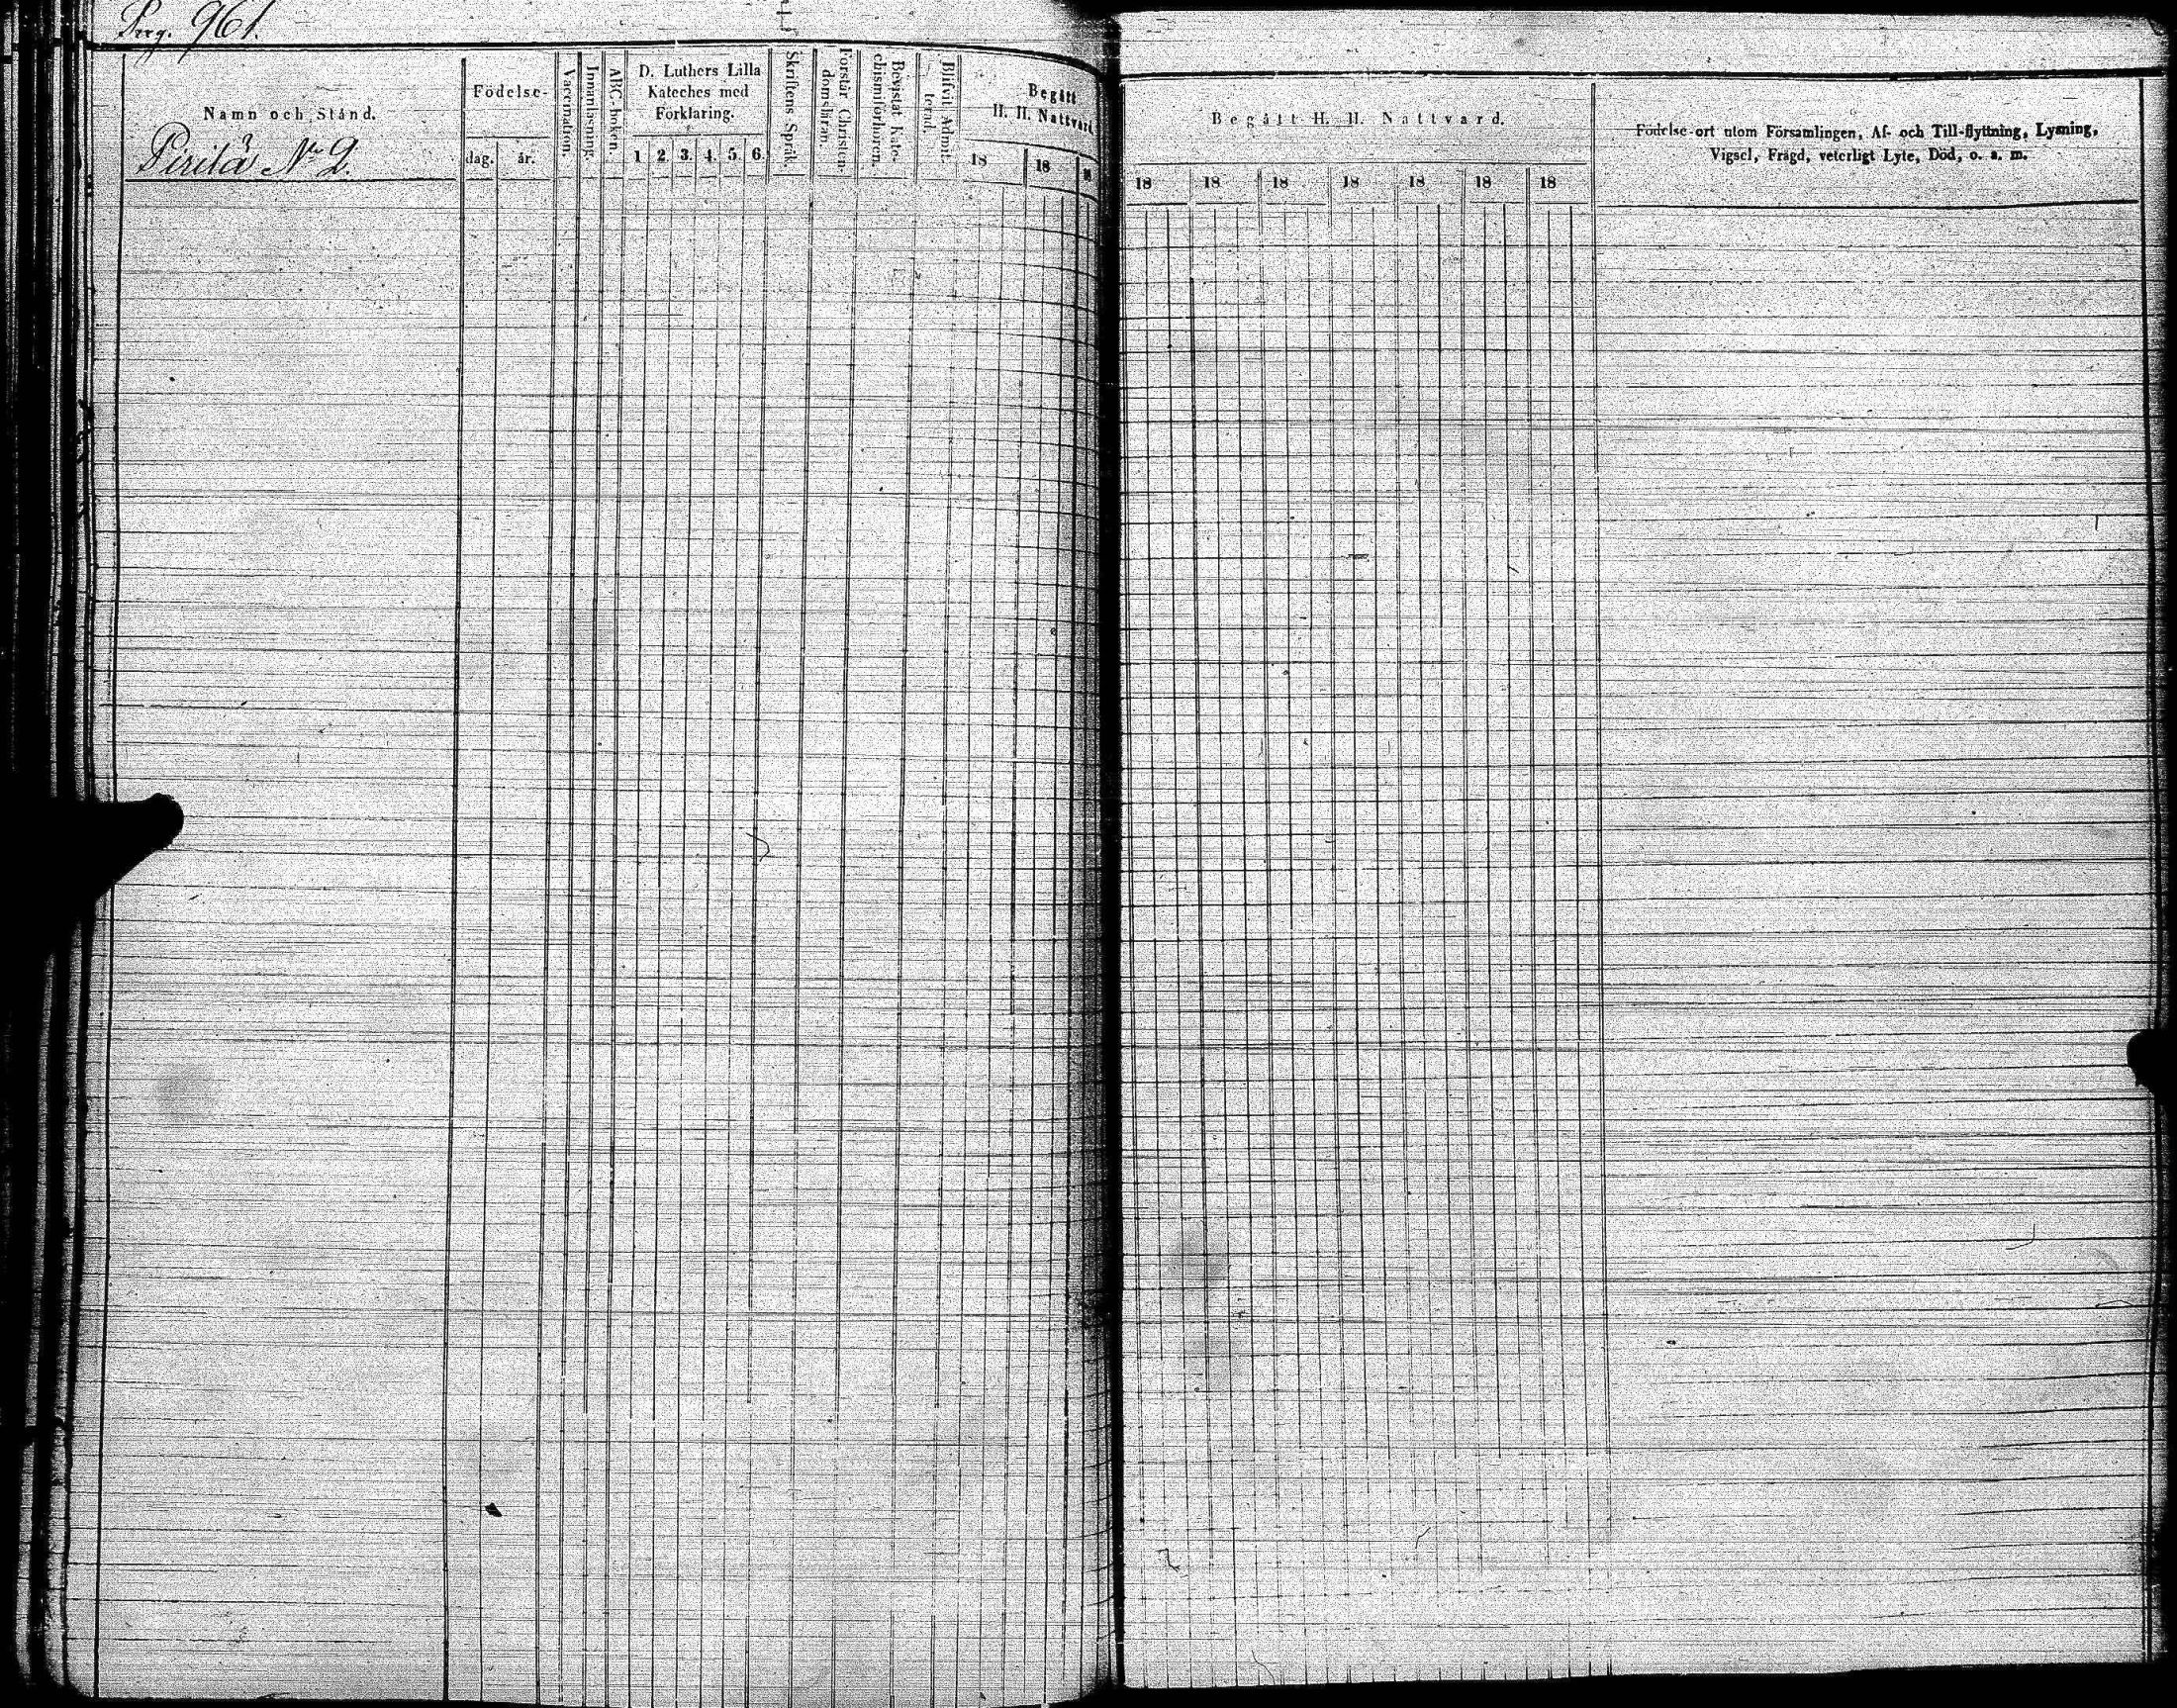 Pag. 961.
Namn och Stånd.
Pirilä No 2.
Födelse-
dag. år.
Vaccination.
Innanläsning.
ABC-boken.
D. Luthers Lilla
Kateches med
Förklaring.
1 2. 3. 4. 5. 6.
Skriftens Språk.
Förstår Christen-
domsläran.
Bevistat Kate-
chismiförhören.
Blifvit Admit-
terad.
Begått
H. H. Nattvard
18 18 18
Begått H. H. Nattvard.
18 18 18 18 18 18 18
Födelse-ort utom Församlingen, Af- och Till-flyttning, Lysning,
Vigsel, Frägd, veterligt Lyte, Död, o. s. m.